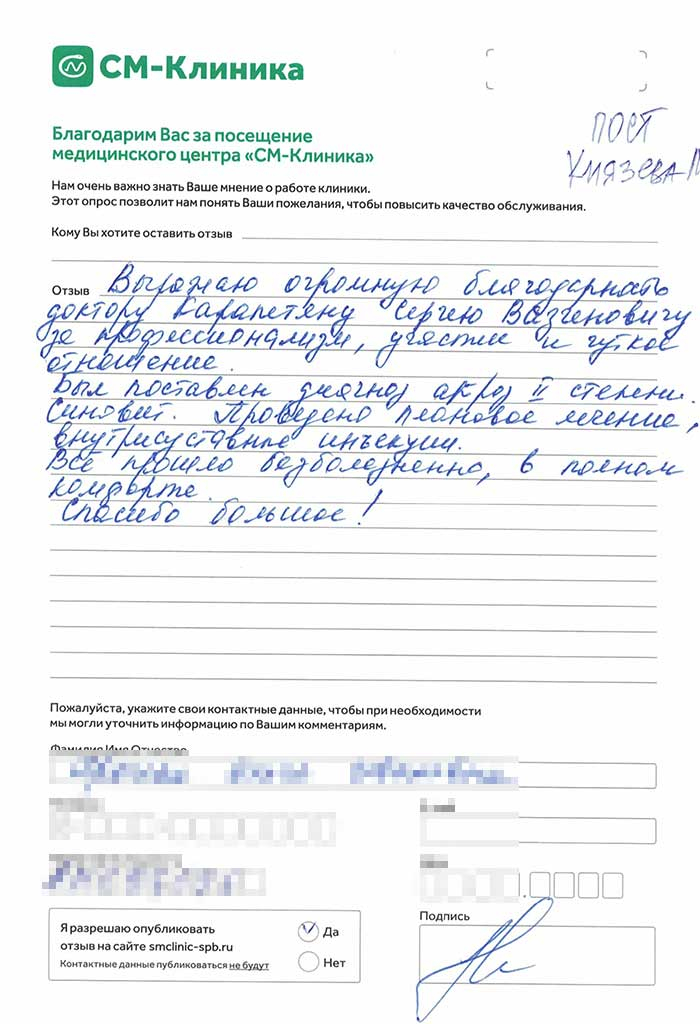 СМ-Клиника
ПОСТ
Князева М
Благодарим Вас за посещение
медицинского центра «СМ-Клиника»
Нам очень важно знать Ваше мнение о работе клиники.
Этот опрос позволит нам понять Ваши пожелания, чтобы повысить качество обслуживания.
Кому Вы хотите оставить отзыв
Отзыв Выражаю огромную благодарность
доктору Карапетяну Сергею Вазгеновичу
за профессионализм, участие и чуткое
отношение.
Был поставлен диагноз артроз II степени.
Синовит. Проведено плановое лечение,
внутрисуставные инъекции.
Всё прошло безболезненно, в полном
комфорте.
Спасибо большое!
Пожалуйста, укажите свои контактные данные, чтобы при необходимости
мы могли уточнить информацию по Вашим комментариям.
Фамилия Имя Отчество
Я разрешаю опубликовать
отзыв на сайте smclinic-spb.ru
Контактные данные публиковаться не будут
Да
Нет
Подпись